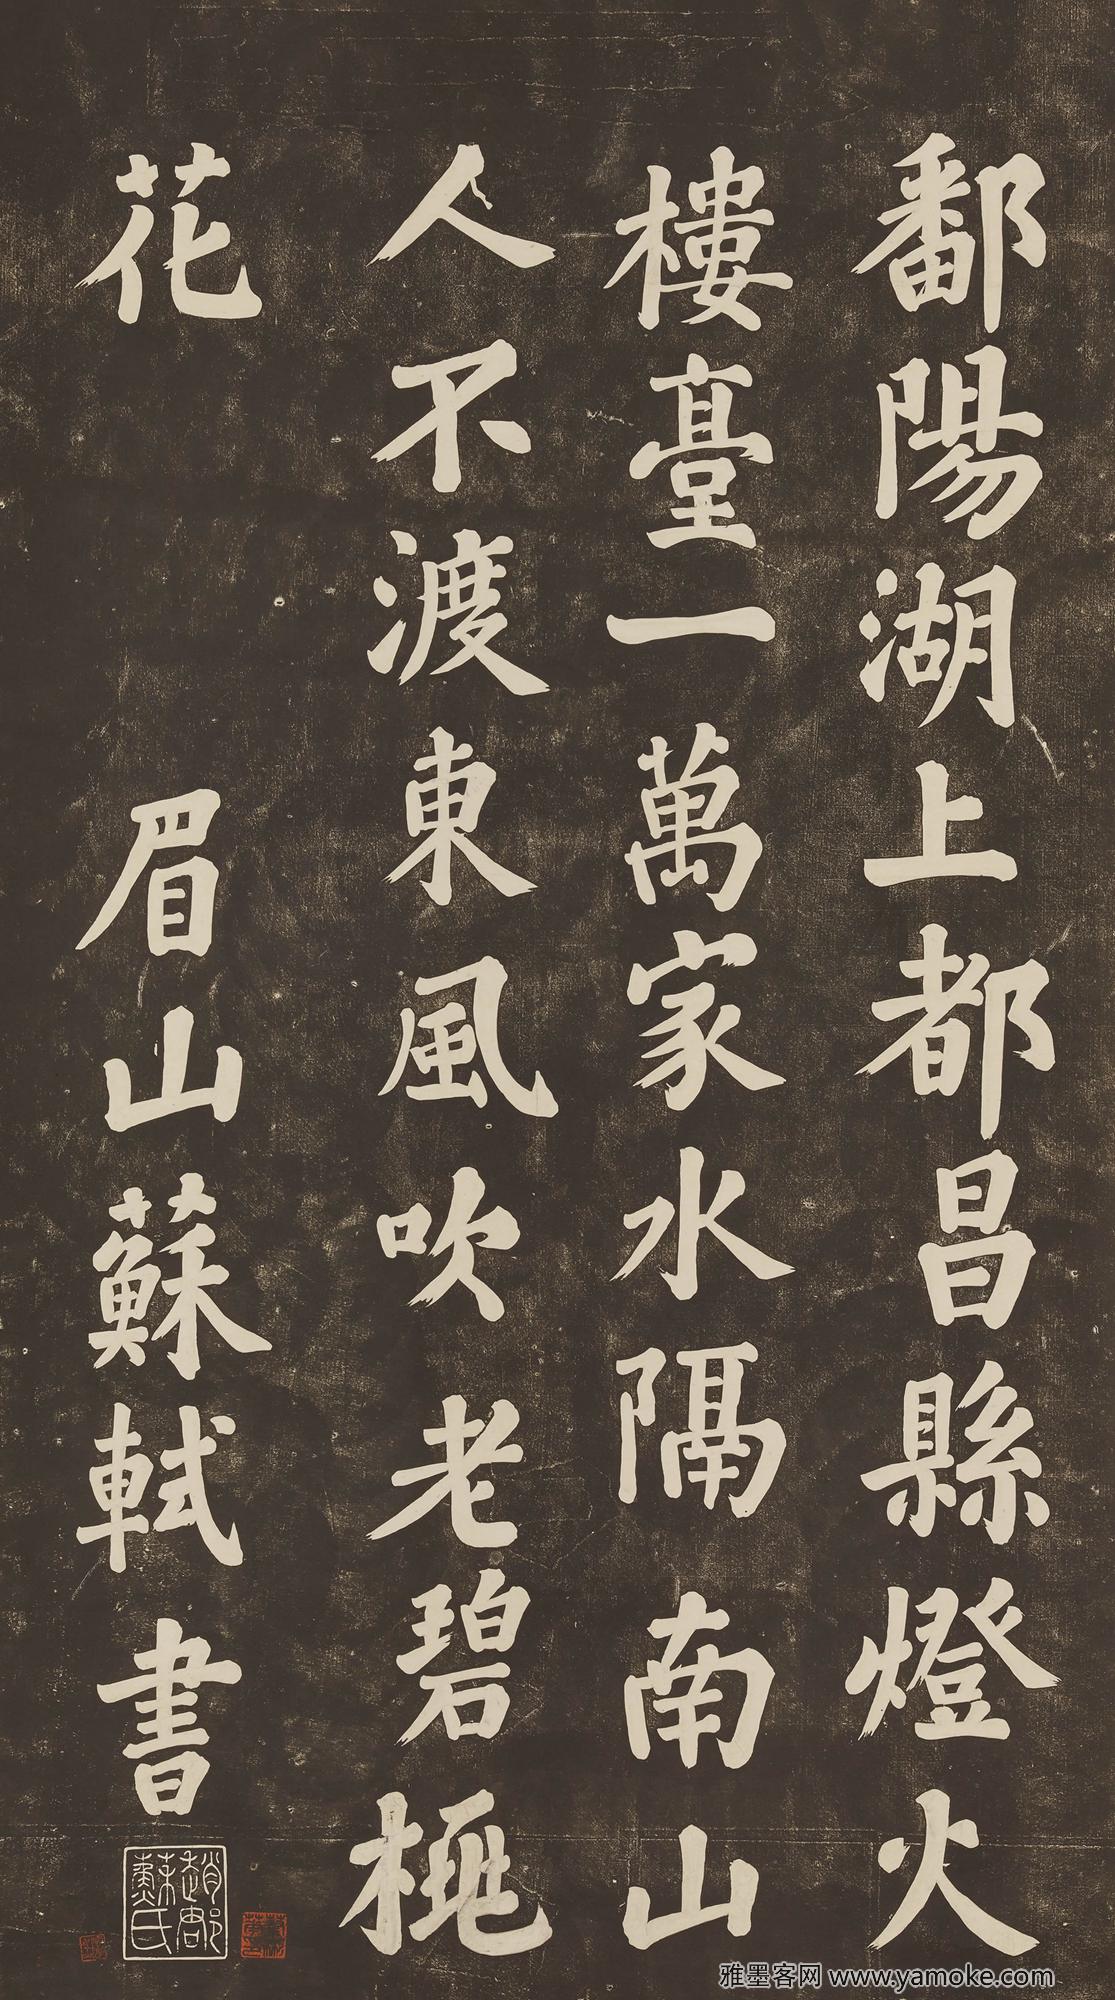 鄱陽湖上都昌縣燈火
樓臺一萬家水隔南山
人不渡東風吹老碧桃
花
眉山蘇軾書
趙郡蘇氏
雅墨客网 www.yamoke.com